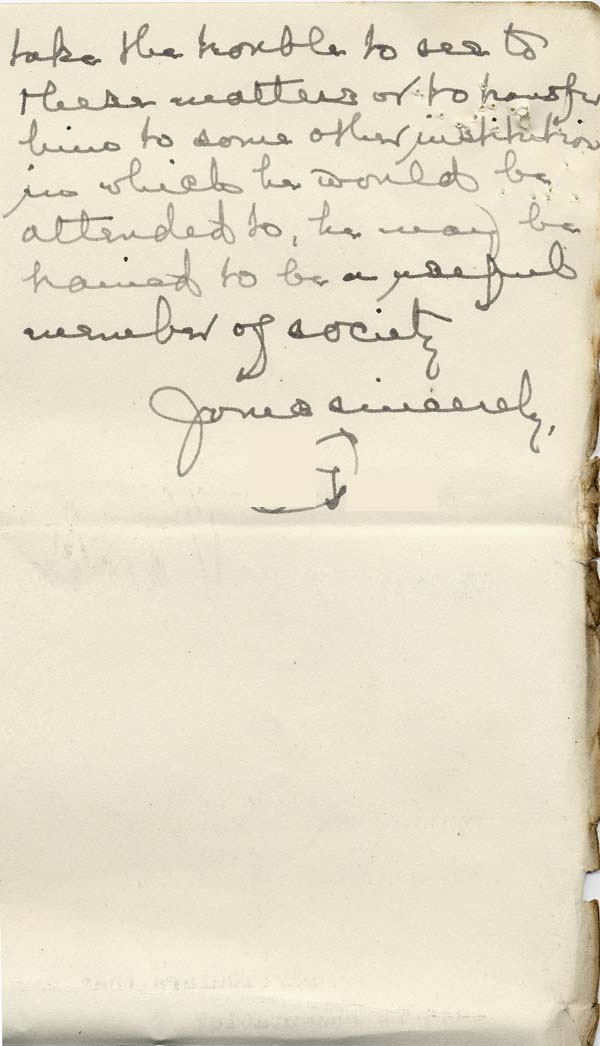 take the trouble to see to
these matters or to transfer
him to some other institution
in which he would be
attended to, he may be
trained to be a useful
member of society
Yours sincerely,